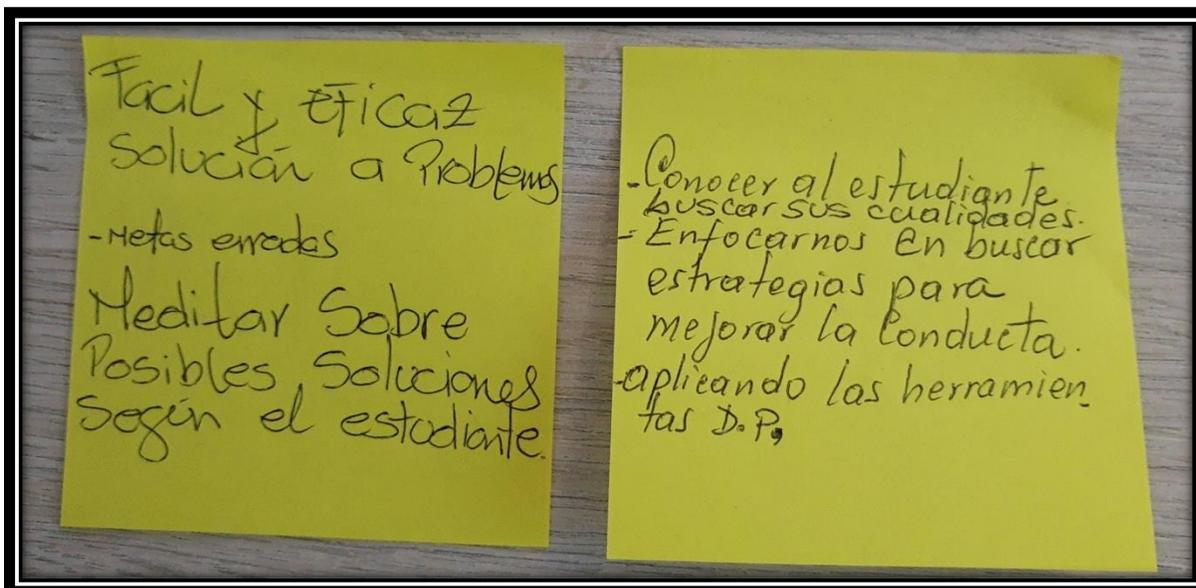 Facil y eficaz
Solución a Problemas
-Metas erradas
Meditar Sobre
Posibles Soluciones
Según el estudiante.
-Conocer al estudiante
buscar sus cualidades.
-Enfocarnos en buscar
estrategias para
mejorar la conducta.
-aplicando las herramien_
tas D.P,